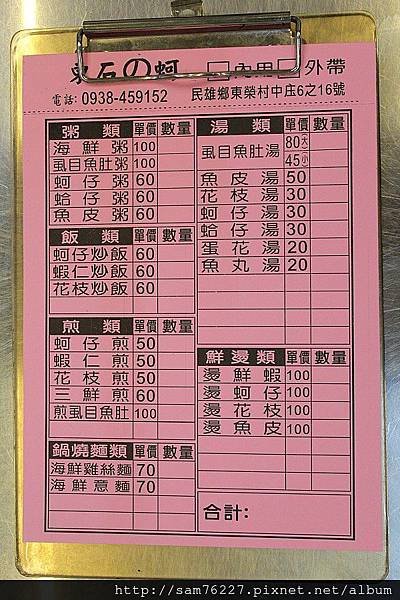 東石の蚵 □內用□外帶
電話: 0938-459152 民雄鄉東榮村中庄6之16號
粥類 單價 數量
海鮮粥 100
虱目魚肚粥 100
蚵仔粥 60
蛤仔粥 60
魚皮粥 60
飯類 單價 數量
蚵仔炒飯 60
蝦仁炒飯 60
花枝炒飯 60
煎類 單價 數量
蚵仔煎 50
蝦仁煎 50
花枝煎 50
三鮮煎 60
煎虱目魚肚 100
鍋燒麵類 單價 數量
海鮮雞絲麵 70
海鮮意麵 70
湯類 單價 數量
虱目魚肚湯 80大
45小
魚皮湯 50
花枝湯 30
蚵仔湯 30
蛤仔湯 30
蛋花湯 20
魚丸湯 20
鮮燙類 單價 數量
燙鮮蝦 100
燙蚵仔 100
燙花枝 100
燙魚皮 100
合計:
http://sam76227.pixnet.net/album